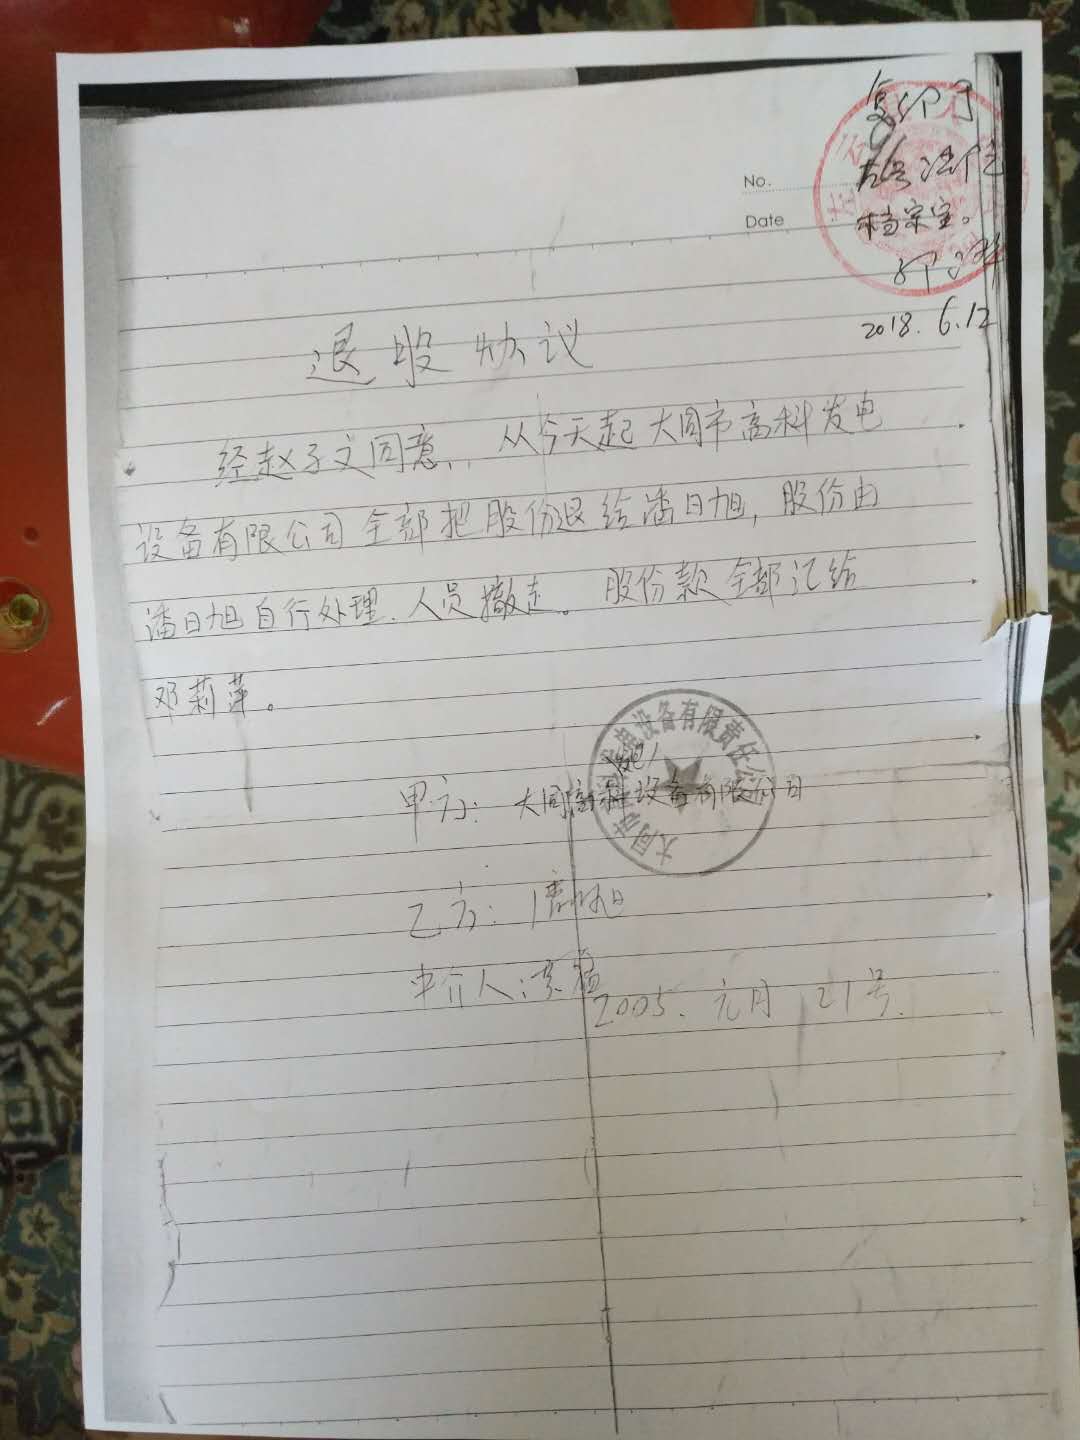 复印于
法院
档案室。
No.
Date
2018.6.12
退股协议
经赵子文同意、从今天起大同市高科发电
设备有限公司全部把股份退给潘日旭,股份由
潘日旭自行处理.人员撤走。股份款全部汇给
邓莉萍。
设备有限责任公
大同市
甲方:大同高科设备有限公司
乙方:潘旭
中介人:
2005.元月21号.